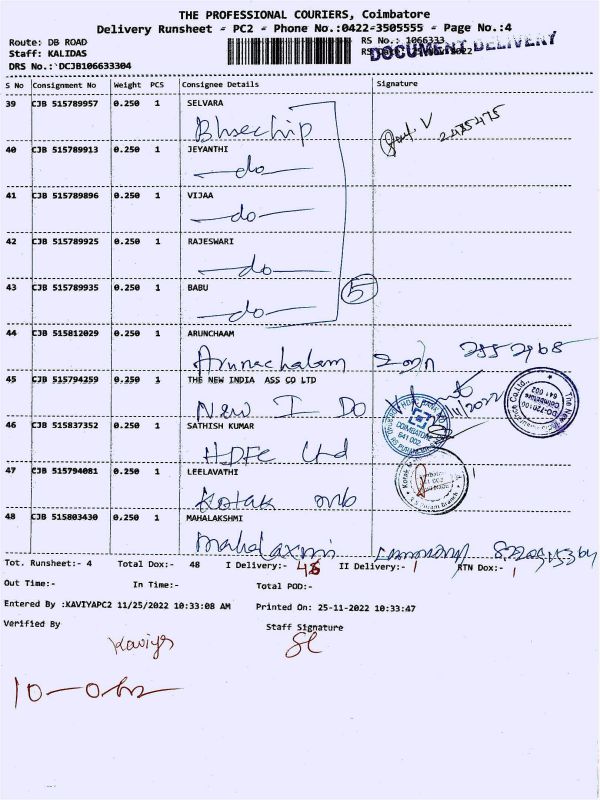 THE PROFESSIONAL COURIERS, Coimbatore
Delivery Runsheet - PC2 - Phone No.:0422-3505555 - Page No.:4
Route: DB ROAD
RS No.: 1066333
Staff: KALIDAS
DOCUMENT DELIVERY
DRS No.: DCJB106633304
S No Consignment No Weight PCS Consignee Details Signature
39 CJB 515789957 0.250 1 SELVARA
Bhsechip
40 CJB 515789913 0.250 1 JEYANTHI
-do-
41 CJB 515789896 0.250 1 VIJAA
-do-
42 CJB 515789925 0.250 1 RAJESWARI
-do-
43 CJB 515789935 0.250 1 BABU
-do- 5
44 CJB 515812029 0.250 1 ARUNCHAAM
Arunachalam
45 CJB 515794259 0.250 1 THE NEW INDIA ASS CO LTD
New I Do
46 CJB 515837352 0.250 1 SATHISH KUMAR
HDFC Ltd
COIMBATORE
641 002
47 CJB 515794081 0.250 1 LEELAVATHI
Kotak
48 CJB 515803430 0.250 1 MAHALAKSHMI
Mahalaxmi
Tot. Runsheet:- 4 Total Dox:- 48 I Delivery:- II Delivery:- 1 RTN Dox:- 1
Out Time:- In Time:- Total POD:-
Entered By :KAVIYAPC2 11/25/2022 10:33:08 AM Printed On: 25-11-2022 10:33:47
Verified By Staff Signature
Kaviya